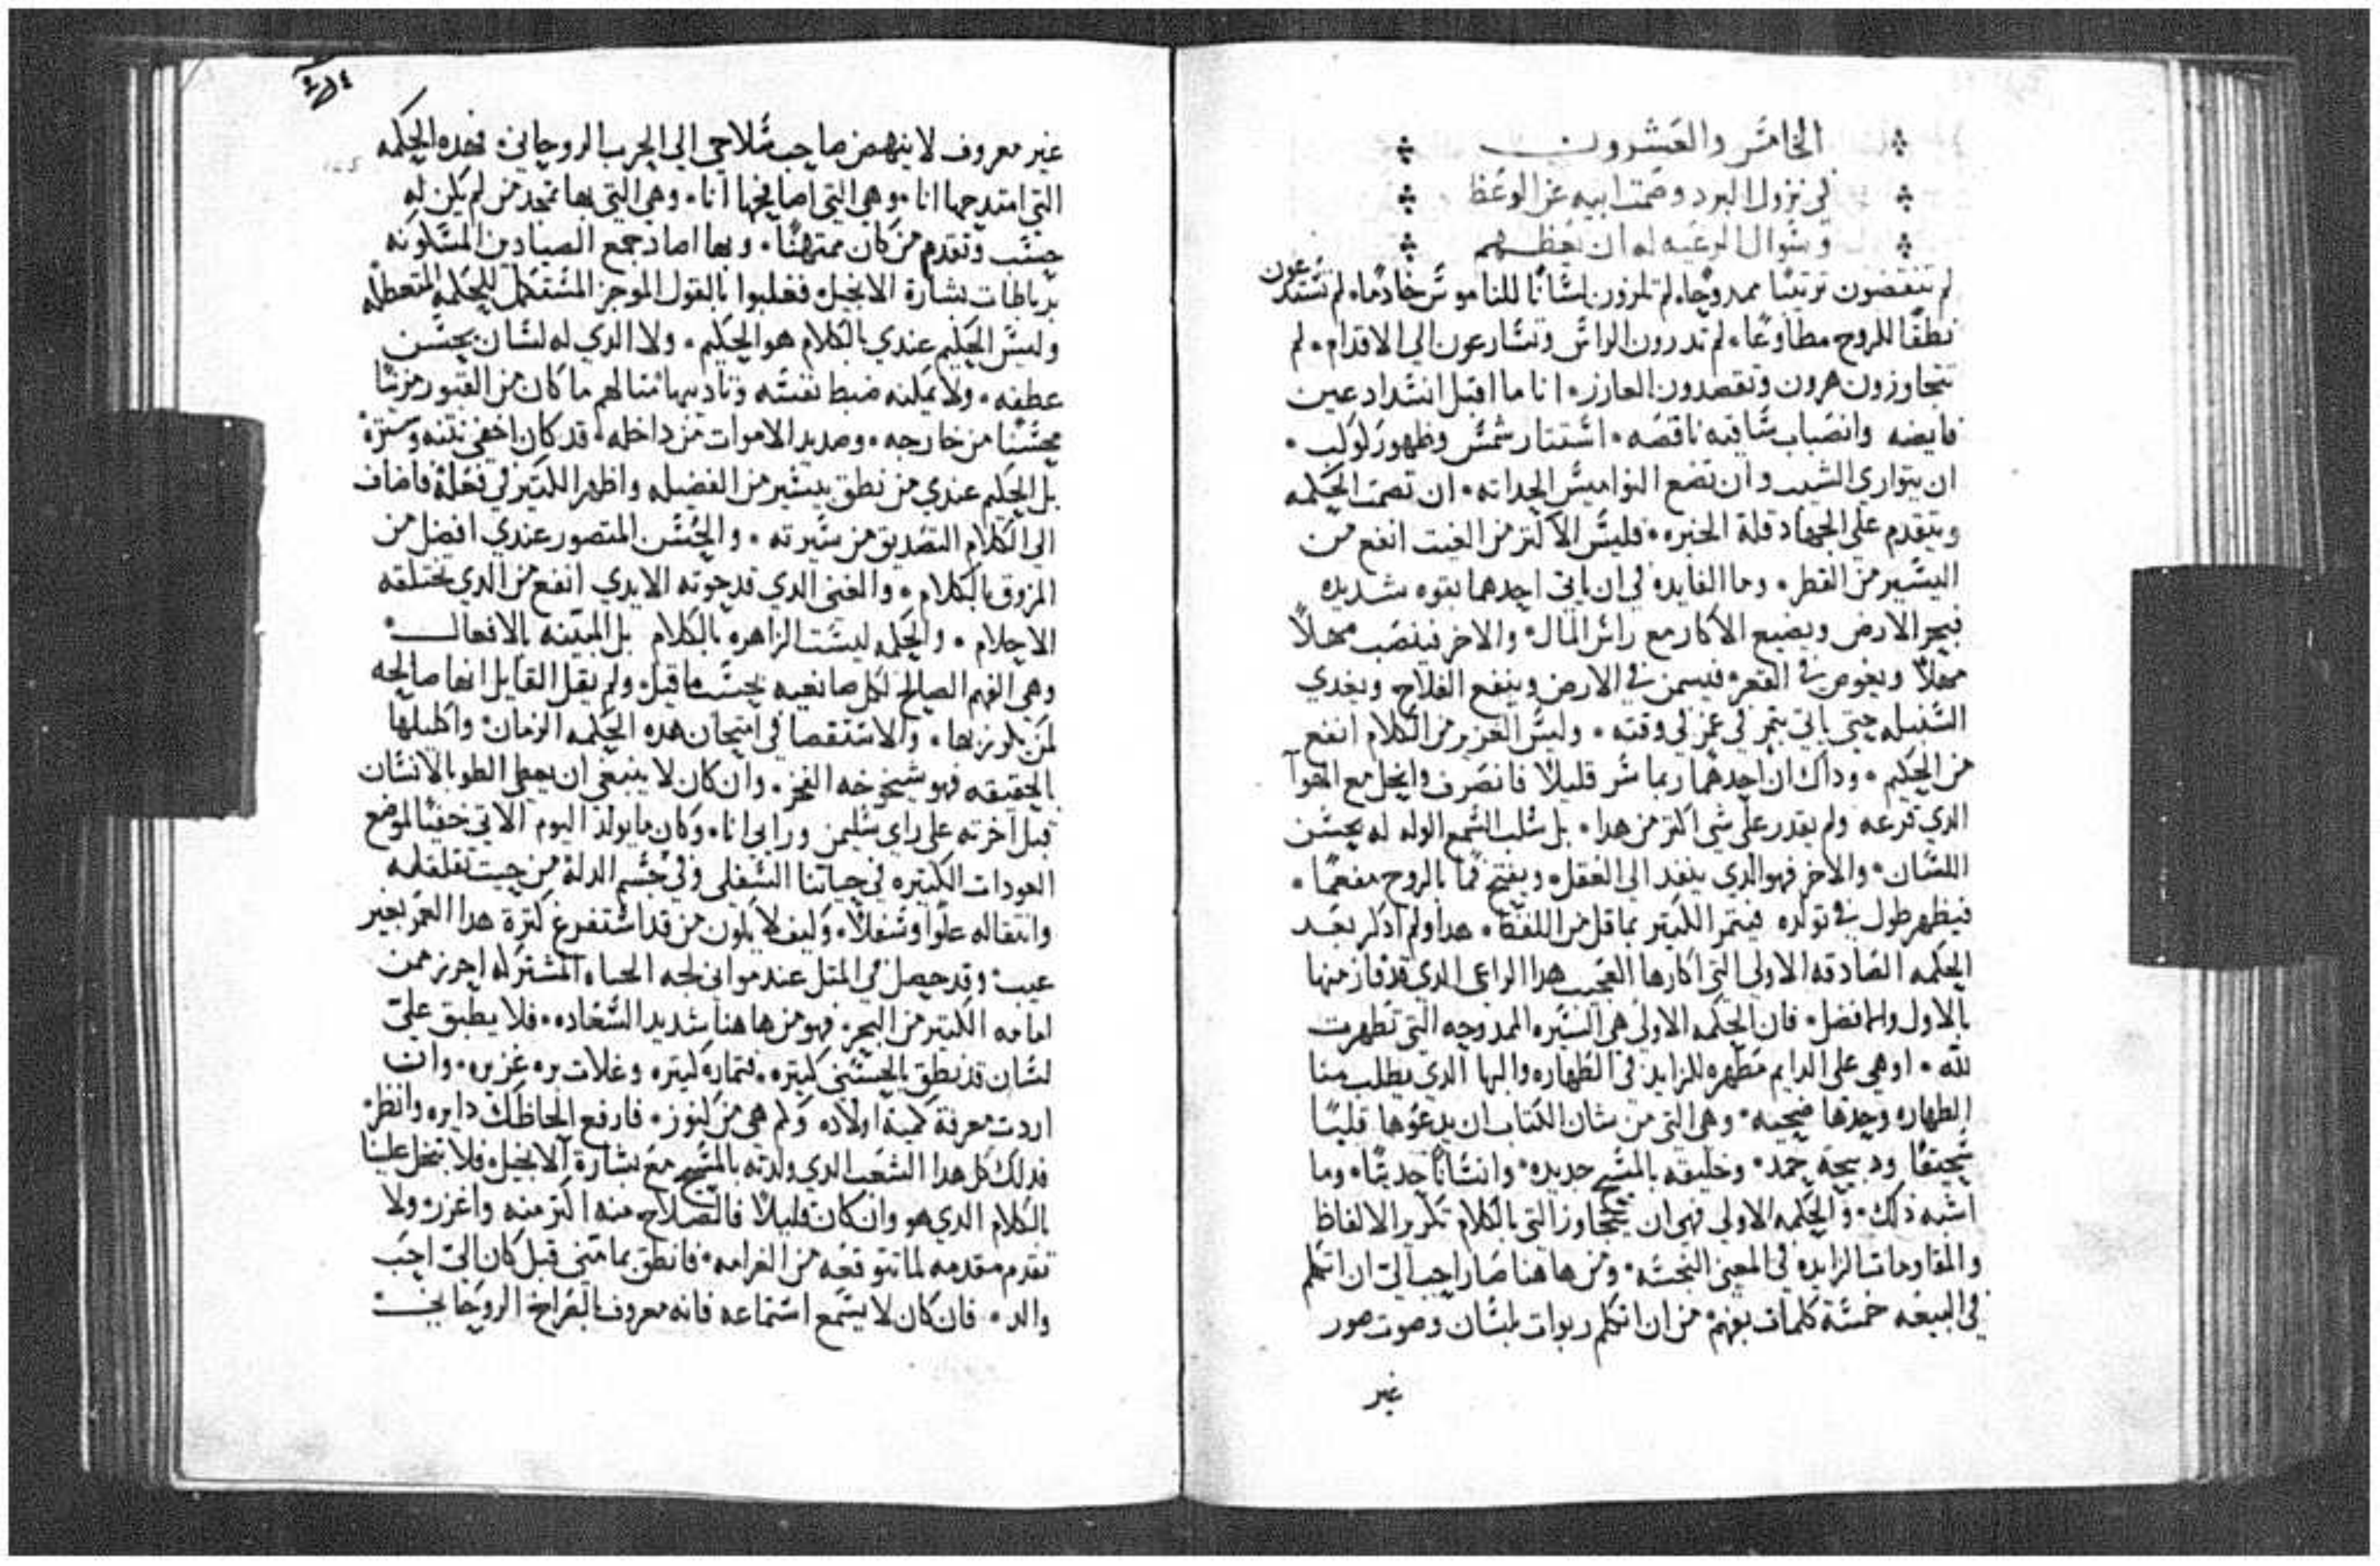 الخامس والعشرون
في نزول البرد وصمت ابيه عن الوعظ
وسوال الرعيه له ان يعظهم
لم تنقضون ترتيبًا ممدوحًا، لم تلزون لسانًا للناموس خادمًا، لم تستدعون
نطقًا للروح مطاوعًا، لم تدرون الراس وتسارعون الي الاقدام، لم
تتجاوزون هرون وتقصدون العازر، انا ما اقبل انسداد عين
فايضه وانصباب ساقيه ناقصه، استتار شمس وظهور كوكب،
ان يتواري الشيب وان تضع النواميس الحداثه، ان تصمت الحكمه
ويتقدم علي الجهاد قلة الخبره، فليس الاكثر من الغيث انفع من
اليسير من القطر، وما الفايده في ان ياتي احدهما بقوه شديده
فيجر الارض ويضيع الاكار مع راس المال، والاخر فينصب مهلاً
مهلاً ويغوص في القعر، فيسمن في الارض وينفع الفلاح ويغدي
السنبله حتي ياتي بثمر في وقته، وليس الغزير من الكلام انفع
من الحكيم، وداك ان احدهما ربما سر قليلاً فانصرف وانحل مع الهوآ
الدي قرعه ولم يقدر علي شي اكثر من هدا، بل سلب السمع الوله له بحسن
اللسان، والاخر فهو الدي ينفد الي العقل، ويفتح فمًا بالروح مفعمًا،
فيظهر طول في تولده فيتمر الكثير بما قل من اللفظ، هدا ولم ادكر بعد
الحكمه الصادقه الاولي التي اكارها العجيب هدا الراعي الدي قد فاز منها
بالاول والافضل، فان الحكمه الاولي هي السيره الممدوحه التي تطهرت
لله، او هي علي الدايم مطهره للزايد في الطهاره والبها الدي يطلب منا
الطهاره وحدها ضحيه، وهي التي من شان الكتاب ان يدعوها قلبًا
سحيقًا ودبيحة حمد، وخليقه بالمسيح جديده، وانسانًا حديثًا، وما
اشبه ذلك، والحكمه الاولي فهي ان نتجاوز التي بالكلام تكرير الالفاظ
والمقاومات الزايده في المعني النجسه، ومن هاهنا صار احب الي ان اتكلم
في البيعه خمسة كلمات بفهم من ان اتكلم ربوات بلسان وصوت صور
غير
غير معروف لا ينهض صاحب سلاحي الي الحرب الروحاني، فهده الحكمه
التي امتدحها انا، وهي التي اصافحها انا، وهي التي بها تمجد من لم يكن له
حسب وتقدم من كان ممتهنًا، وبها اصاد جمع الصيادين المسكونه
برباطات بشارة الانجيل، فغلبوا بالقول الموجز المستكمل للحكمه المتعطله
وليس الحكيم عندي بالكلام هو الحكيم، ولا الدي له لسان يحسن
عطفه، ولا يمكنه ضبط نفسه وتاديبها متالهم ما كان من القبور مزينًا
محسنًا من خارجه، وصديد الاموات من داخله، قد كان اخفي نتنه وستره
بل الحكيم عندي من نطق بيسير من الفضيله واظهر الكثير في فعله فاضاف
الي الكلام التصديق من سيرته، والحسن المتصور عندي افضل من
المزوق بالكلام، والغني الدي قد حوته الايدي انفع من الدي تختلقه
الاحلام، والحكمه ليست الزاهره بالكلام بل المبينه بالافعال
وهي الفهم الصالح لكل صانعيه بحسب ما قيل، ولم يقل القايل انها صالحه
لمن يكرز بها، والاستقصا في امتحان هده الحكمه الزمان، واكليلها
بالحقيقه فهو شيخوخه الفخر، وان كان لا ينبغي ان يعطي الطوبا لانسان
قبل آخرته علي راي سليمن ورايي انا، وكان ما يولد اليوم الاتي خفيًا لموضع
العودات الكثيره في حياتنا السفلي وفي جسم الدله من حيث تقلقله
وانتقاله علوًا وسفلاً، وكيف لا يكون من قد استفرغ كثرة هدا العمر بغير
عيب، وقد حصل في المثل عند مواني لجه الحياه المشتركه احرز ممن
امامه الكثير من البحر، فهو من هاهنا شديد السعاده، فلا يطبق علي
لسان قد نطق بالحسني كثيره، فثماره كثيره وغلات بره غزيره، وان
اردت معرفة كمية اولاده وكم هي من كنوز، فارفع الحاظك دايره وانظر
فدلك كل هدا الشعب الدي ولدته بالمسيح مع بشارة الانجيل، فلا تبخل علينا
بالكلام الدي هو وان كان قليلاً فالصلاح منه اكثر منه واغزر، ولا
تقدم مقدمه لما تتوقعه من الغرامه، فانطق بما متني قبل كان الي احب
والد، فان كان لا يسمع استماعه فانه معروف بالصراخ الروحاني